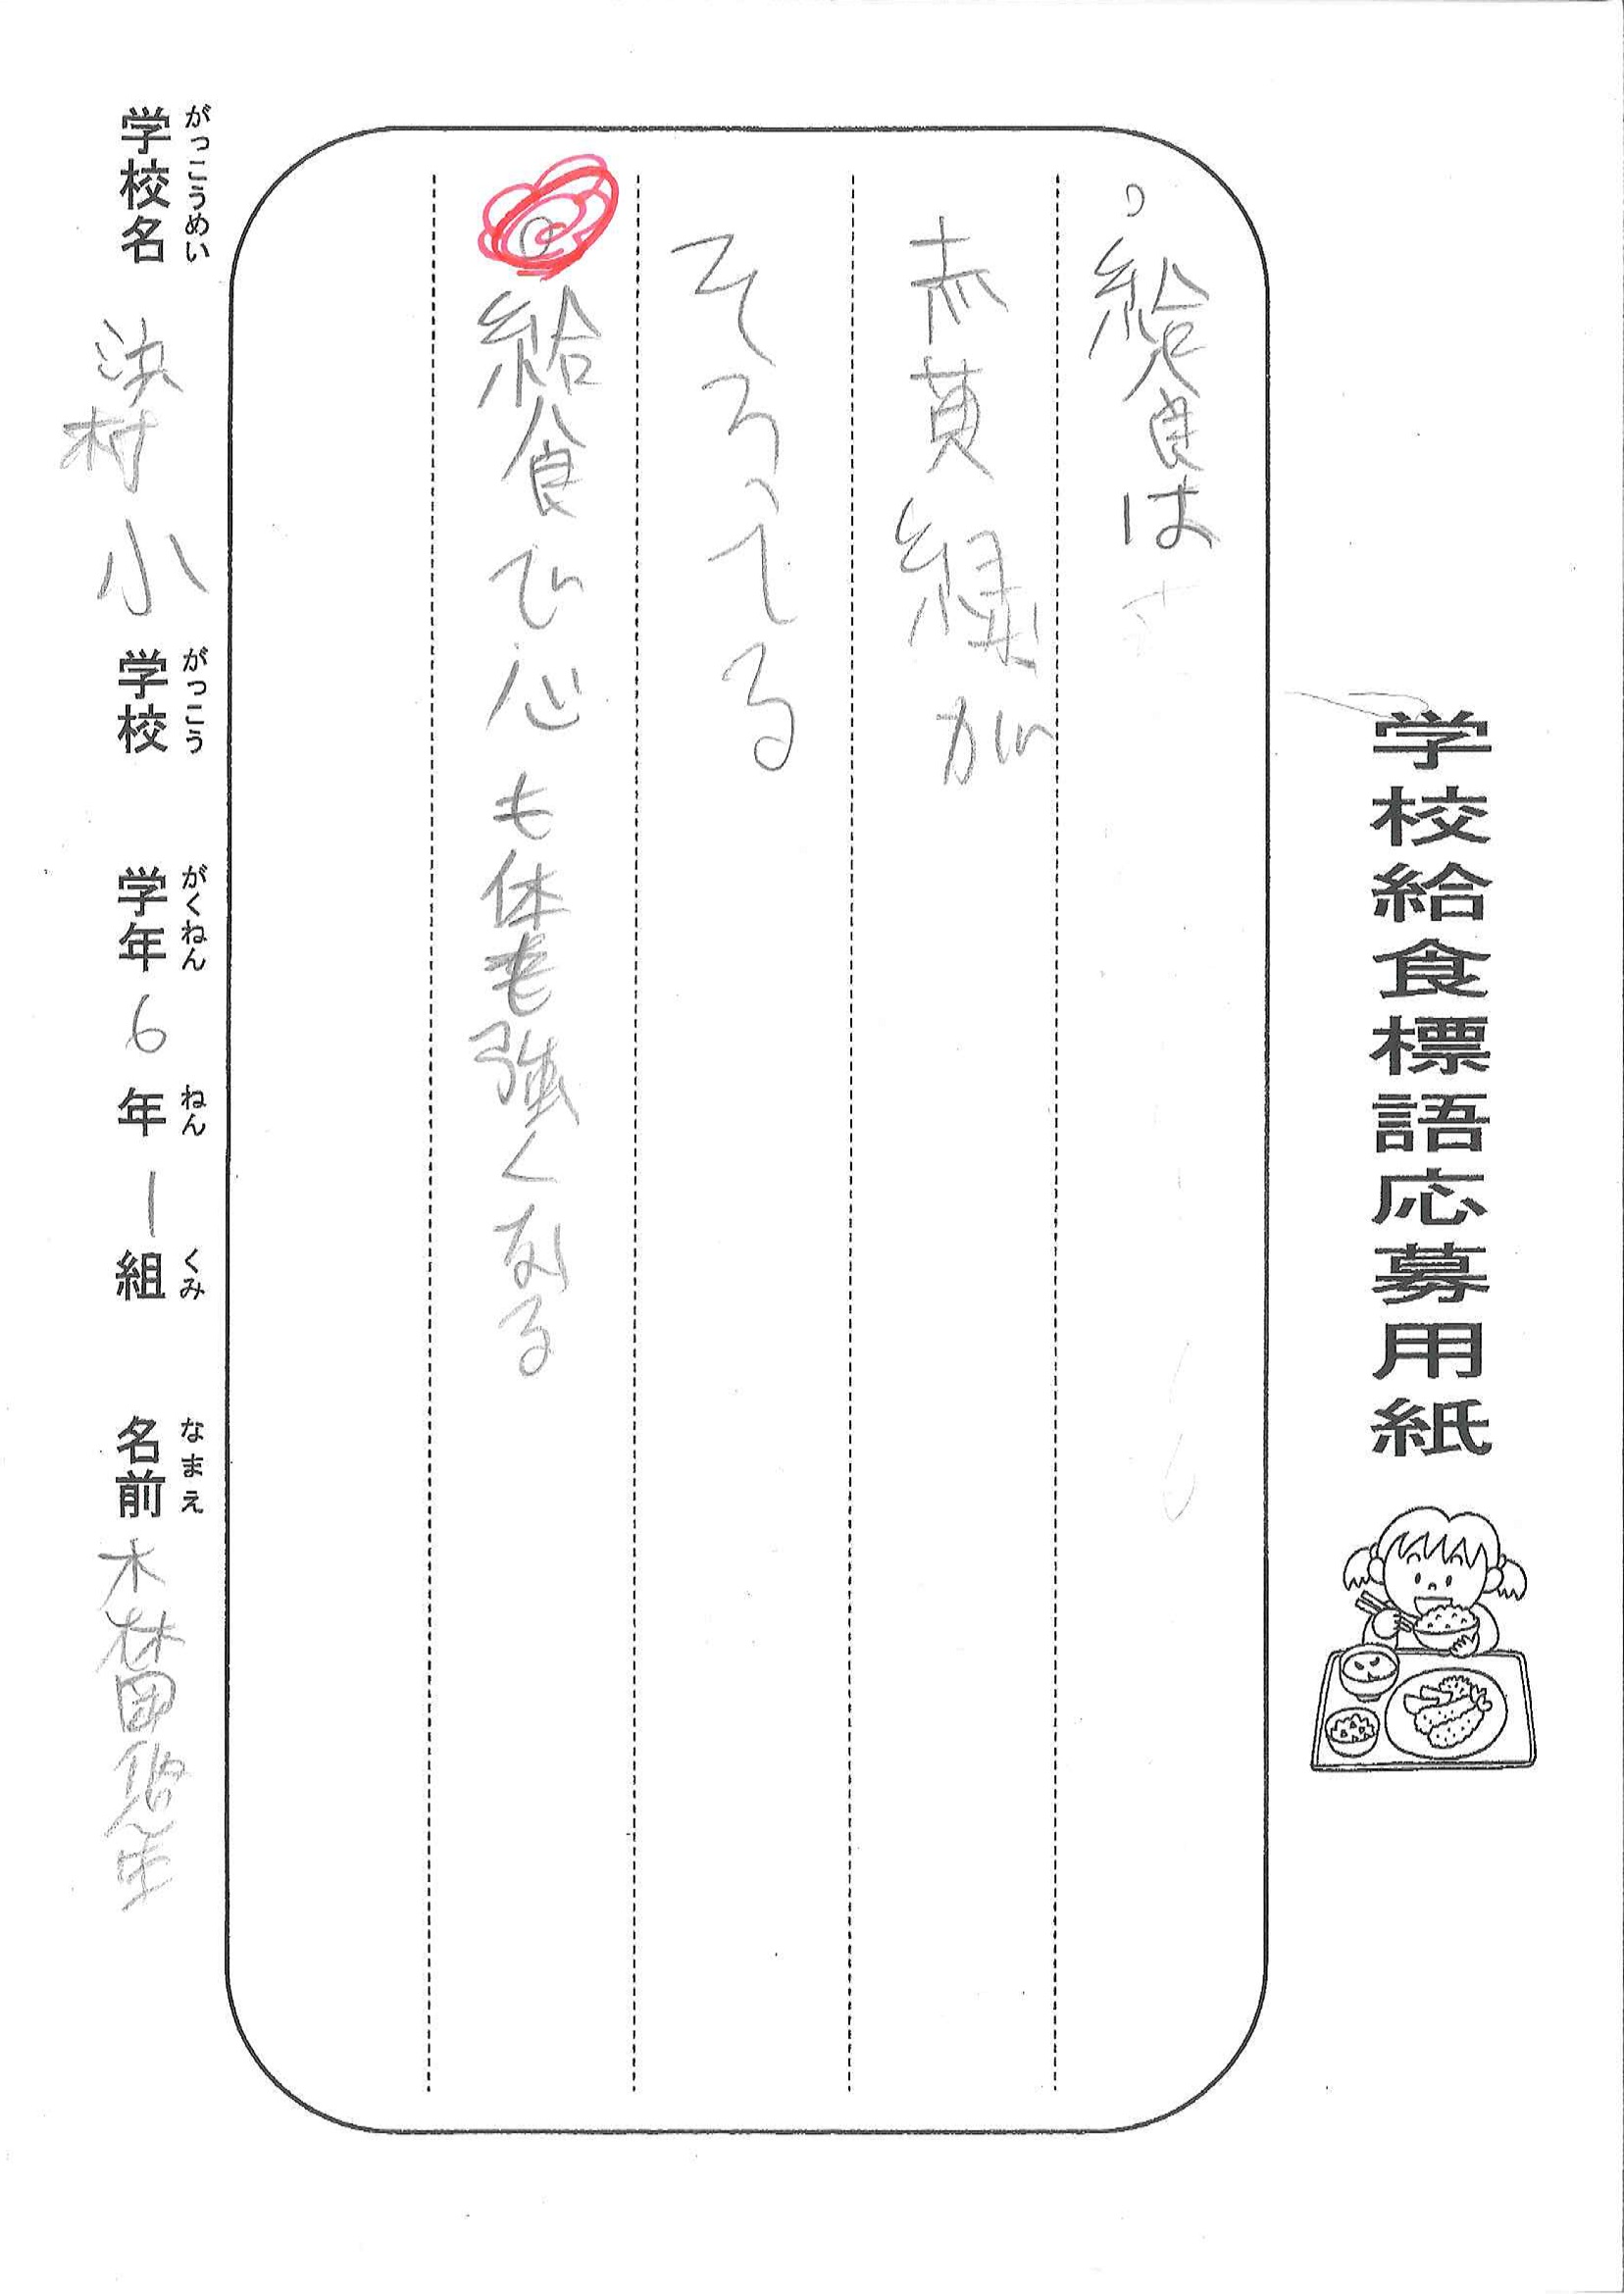 学校給食標語応募用紙
給食は
赤黄緑が
そろってる
給食で心も体も強くなる
がっこうめい
学校名 村小
がっこう
学校
がくねん
学年 6
ねん
年 1
くみ
組
なまえ
名前